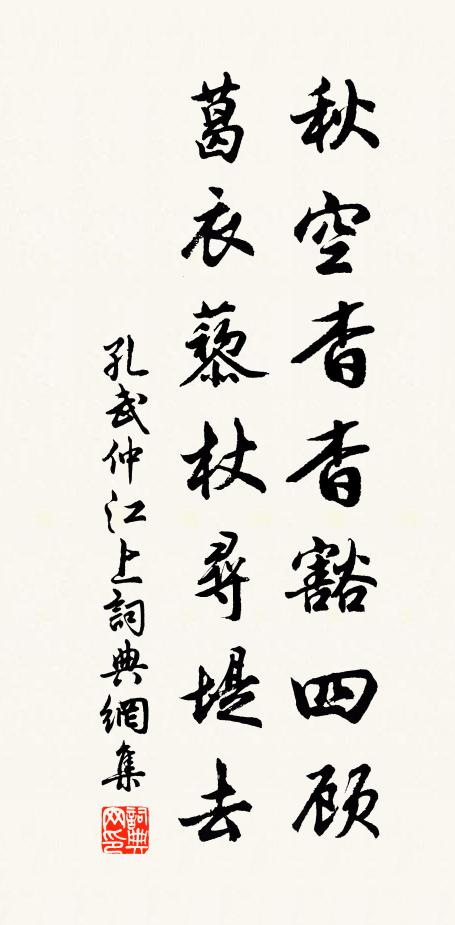 秋空杳杳豁四顾
葛衣藜杖尋堤去
孔武仲江上詞典網集
詞典网印